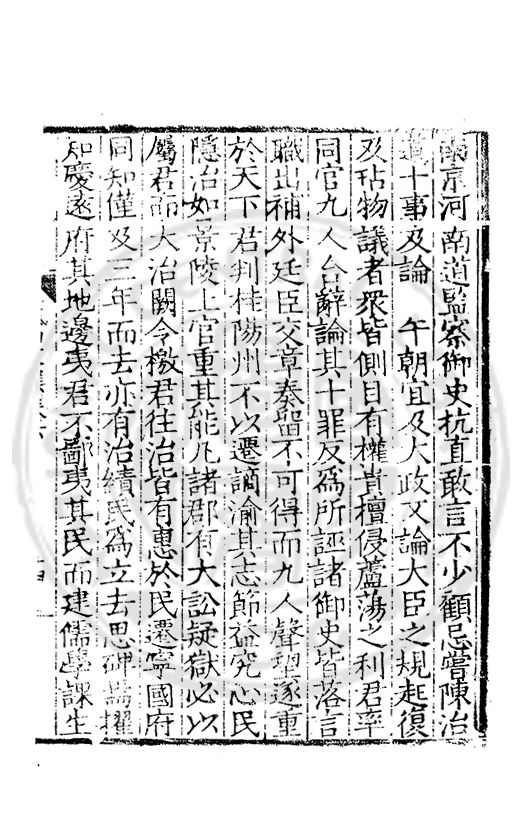 南京河南道監察御史抗直敢言不少顧忌嘗陳治
道十事及論 午朝宜及大政又論大臣之規起復
及玷物議者衆皆側目有權貴擅侵蘆蕩之利君率
同官九人台辭論其十罪反爲所誣諸御史皆落言
職出補外廷臣交章奏留不可得而九人聲望遂重
於天下君判桂陽州不以遷謫渝其志節益究心民
隱治如景陵上官重其能凡諸郡有大訟疑獄必以
屬君而大治闕令檄君往治皆有惠於民遷寧國府
同知僅及三年而去亦有治績民爲立去思碑焉擢
知慶遠府其地邊夷君不鄙夷其民而建儒學課生